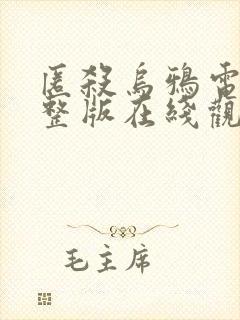 匿殺烏鴉電
整版在綫觀
毛主席